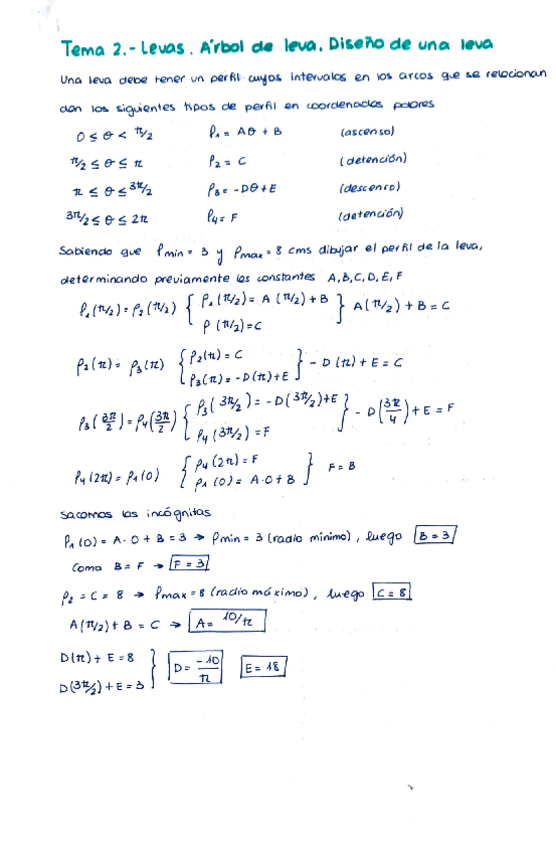 Tema 2.- Levas. Árbol de leva. Diseño de una leva
Una leva debe tener un perfil cuyos intervalos en los arcos que se relacionan
don los siguientes tipos de perfil en coordenadas polares
0 ≤ θ < π/2 ρ₁ = Aθ + B (ascenso)
π/2 ≤ θ ≤ π ρ₂ = C (detención)
π ≤ θ ≤ 3π/2 ρ₃ = -Dθ + E (descenso)
3π/2 ≤ θ ≤ 2π ρ₄ = F (detención)
Sabiendo que ρmin = 3 y ρmax = 8 cms dibujar el perfil de la leva,
determinando previamente las constantes A, B, C, D, E, F
ρ₁(π/2) = ρ₂(π/2) { ρ₁(π/2) = A(π/2) + B
ρ(π/2) = C } A(π/2) + B = C
ρ₂(π) = ρ₃(π) { ρ₂(π) = C
ρ₃(π) = -D(π) + E } -D(π) + E = C
ρ₃(3π/2) = ρ₄(3π/2) { ρ₃(3π/2) = -D(3π/2) + E
ρ₄(3π/2) = F } -D(3π/4) + E = F
ρ₄(2π) = ρ₁(0) { ρ₄(2π) = F
ρ₁(0) = A·0 + B } F = B
Sacamos las incógnitas
ρ₁(0) = A·0 + B = 3 → ρmin = 3 (radio mínimo), luego B = 3
Como B = F → F = 3
ρ₂ = C = 8 → ρmax = 8 (radio máximo), luego C = 8
A(π/2) + B = C → A = 10/π
D(π) + E = 8
D(3π/2) + E = 3 } D = -10/π E = 18